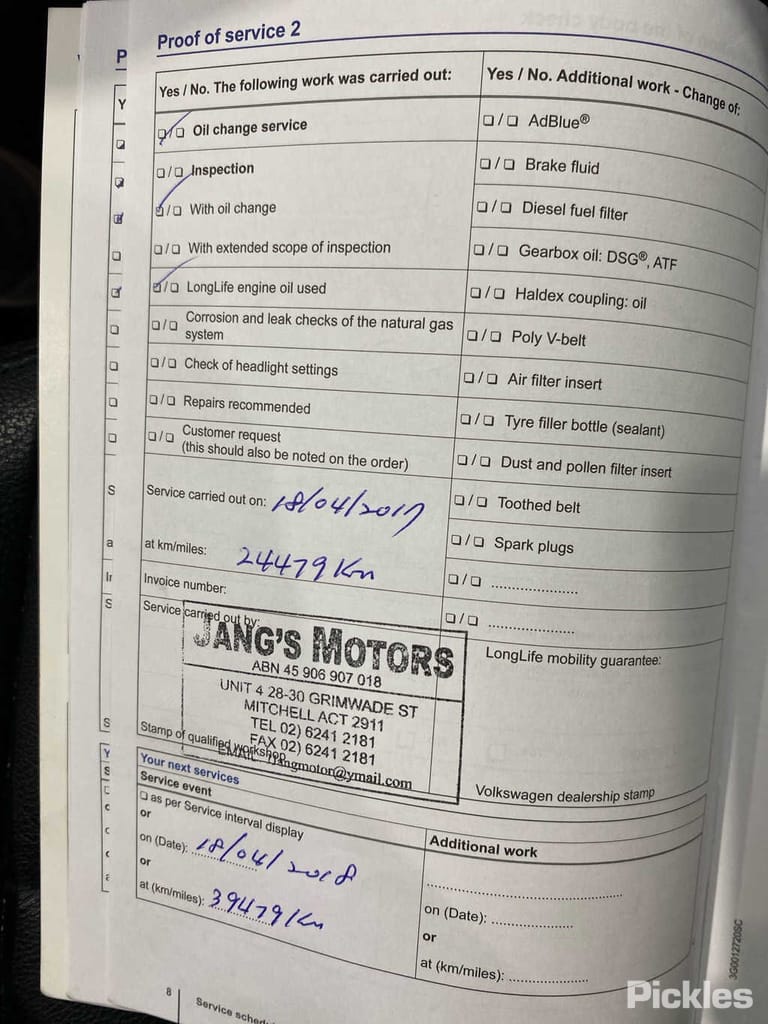 Proof of service 2
Yes / No. The following work was carried out:
❑ / ❑ Oil change service
❑ / ❑ Inspection
❑ / ❑ With oil change
❑ / ❑ With extended scope of inspection
❑ / ❑ LongLife engine oil used
❑ / ❑ Corrosion and leak checks of the natural gas
system
❑ / ❑ Check of headlight settings
❑ / ❑ Repairs recommended
❑ / ❑ Customer request
(this should also be noted on the order)
Service carried out on: 18/04/2017
at km/miles: 24479 Km
Invoice number:
Service carried out by:
JANG'S MOTORS
ABN 45 906 907 018
UNIT 4 28-30 GRIMWADE ST
MITCHELL ACT 2911
TEL 02) 6241 2181
FAX 02) 6241 2181
EMAIL: jangmotor@ymail.com
Stamp of qualified workshop
Yes / No. Additional work - Change of:
❑ / ❑ AdBlue®
❑ / ❑ Brake fluid
❑ / ❑ Diesel fuel filter
❑ / ❑ Gearbox oil: DSG®, ATF
❑ / ❑ Haldex coupling: oil
❑ / ❑ Poly V-belt
❑ / ❑ Air filter insert
❑ / ❑ Tyre filler bottle (sealant)
❑ / ❑ Dust and pollen filter insert
❑ / ❑ Toothed belt
❑ / ❑ Spark plugs
❑ / ❑ ....................
❑ / ❑ ....................
LongLife mobility guarantee:
Volkswagen dealership stamp
Your next services
Service event
❑ as per Service interval display
or
on (Date): 18/04/2018
or
at (km/miles): 39479 Km
Additional work
on (Date): ....................
or
at (km/miles): ....................
8
Service sched
3G0012720SC
Pickles